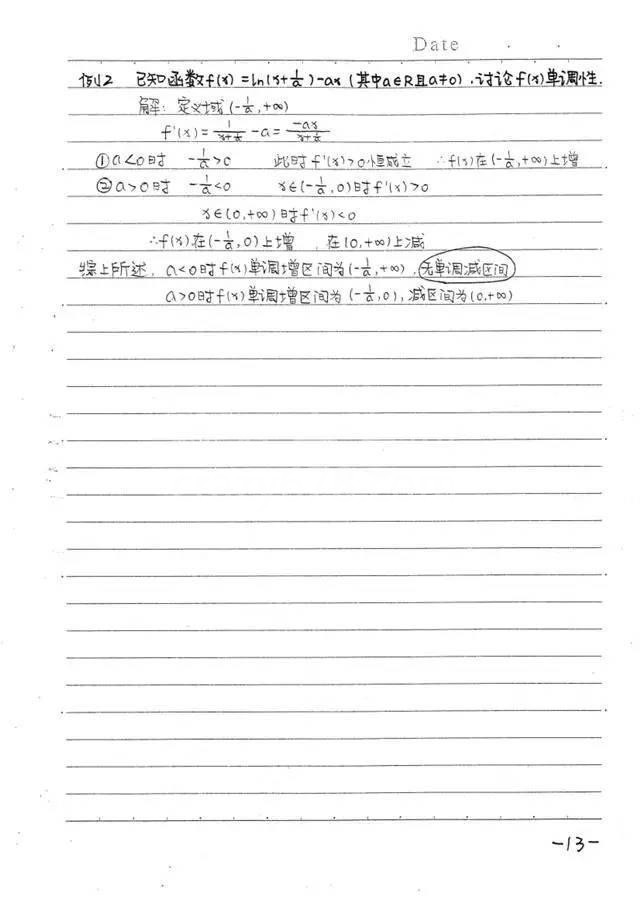 Date
例2 已知函数f(x)=ln(x+1/a)-ax(其中a∈R且a≠0).讨论f(x)单调性.
解:定义域(-1/a,+∞)
f'(x)=1/(x+1/a)-a=-ax/(x+1/a)
①a<0时 -1/a>0 此时f'(x)>0恒成立 ∴f(x)在(-1/a,+∞)上增
②a>0时 -1/a<0 x∈(-1/a,0)时f'(x)>0
x∈(0,+∞)时f'(x)<0
∴f(x)在(-1/a,0)上增 在(0,+∞)上减
综上所述,a<0时f(x)单调增区间为(-1/a,+∞),无单调减区间
a>0时f(x)单调增区间为(-1/a,0),减区间为(0,+∞)
-13-